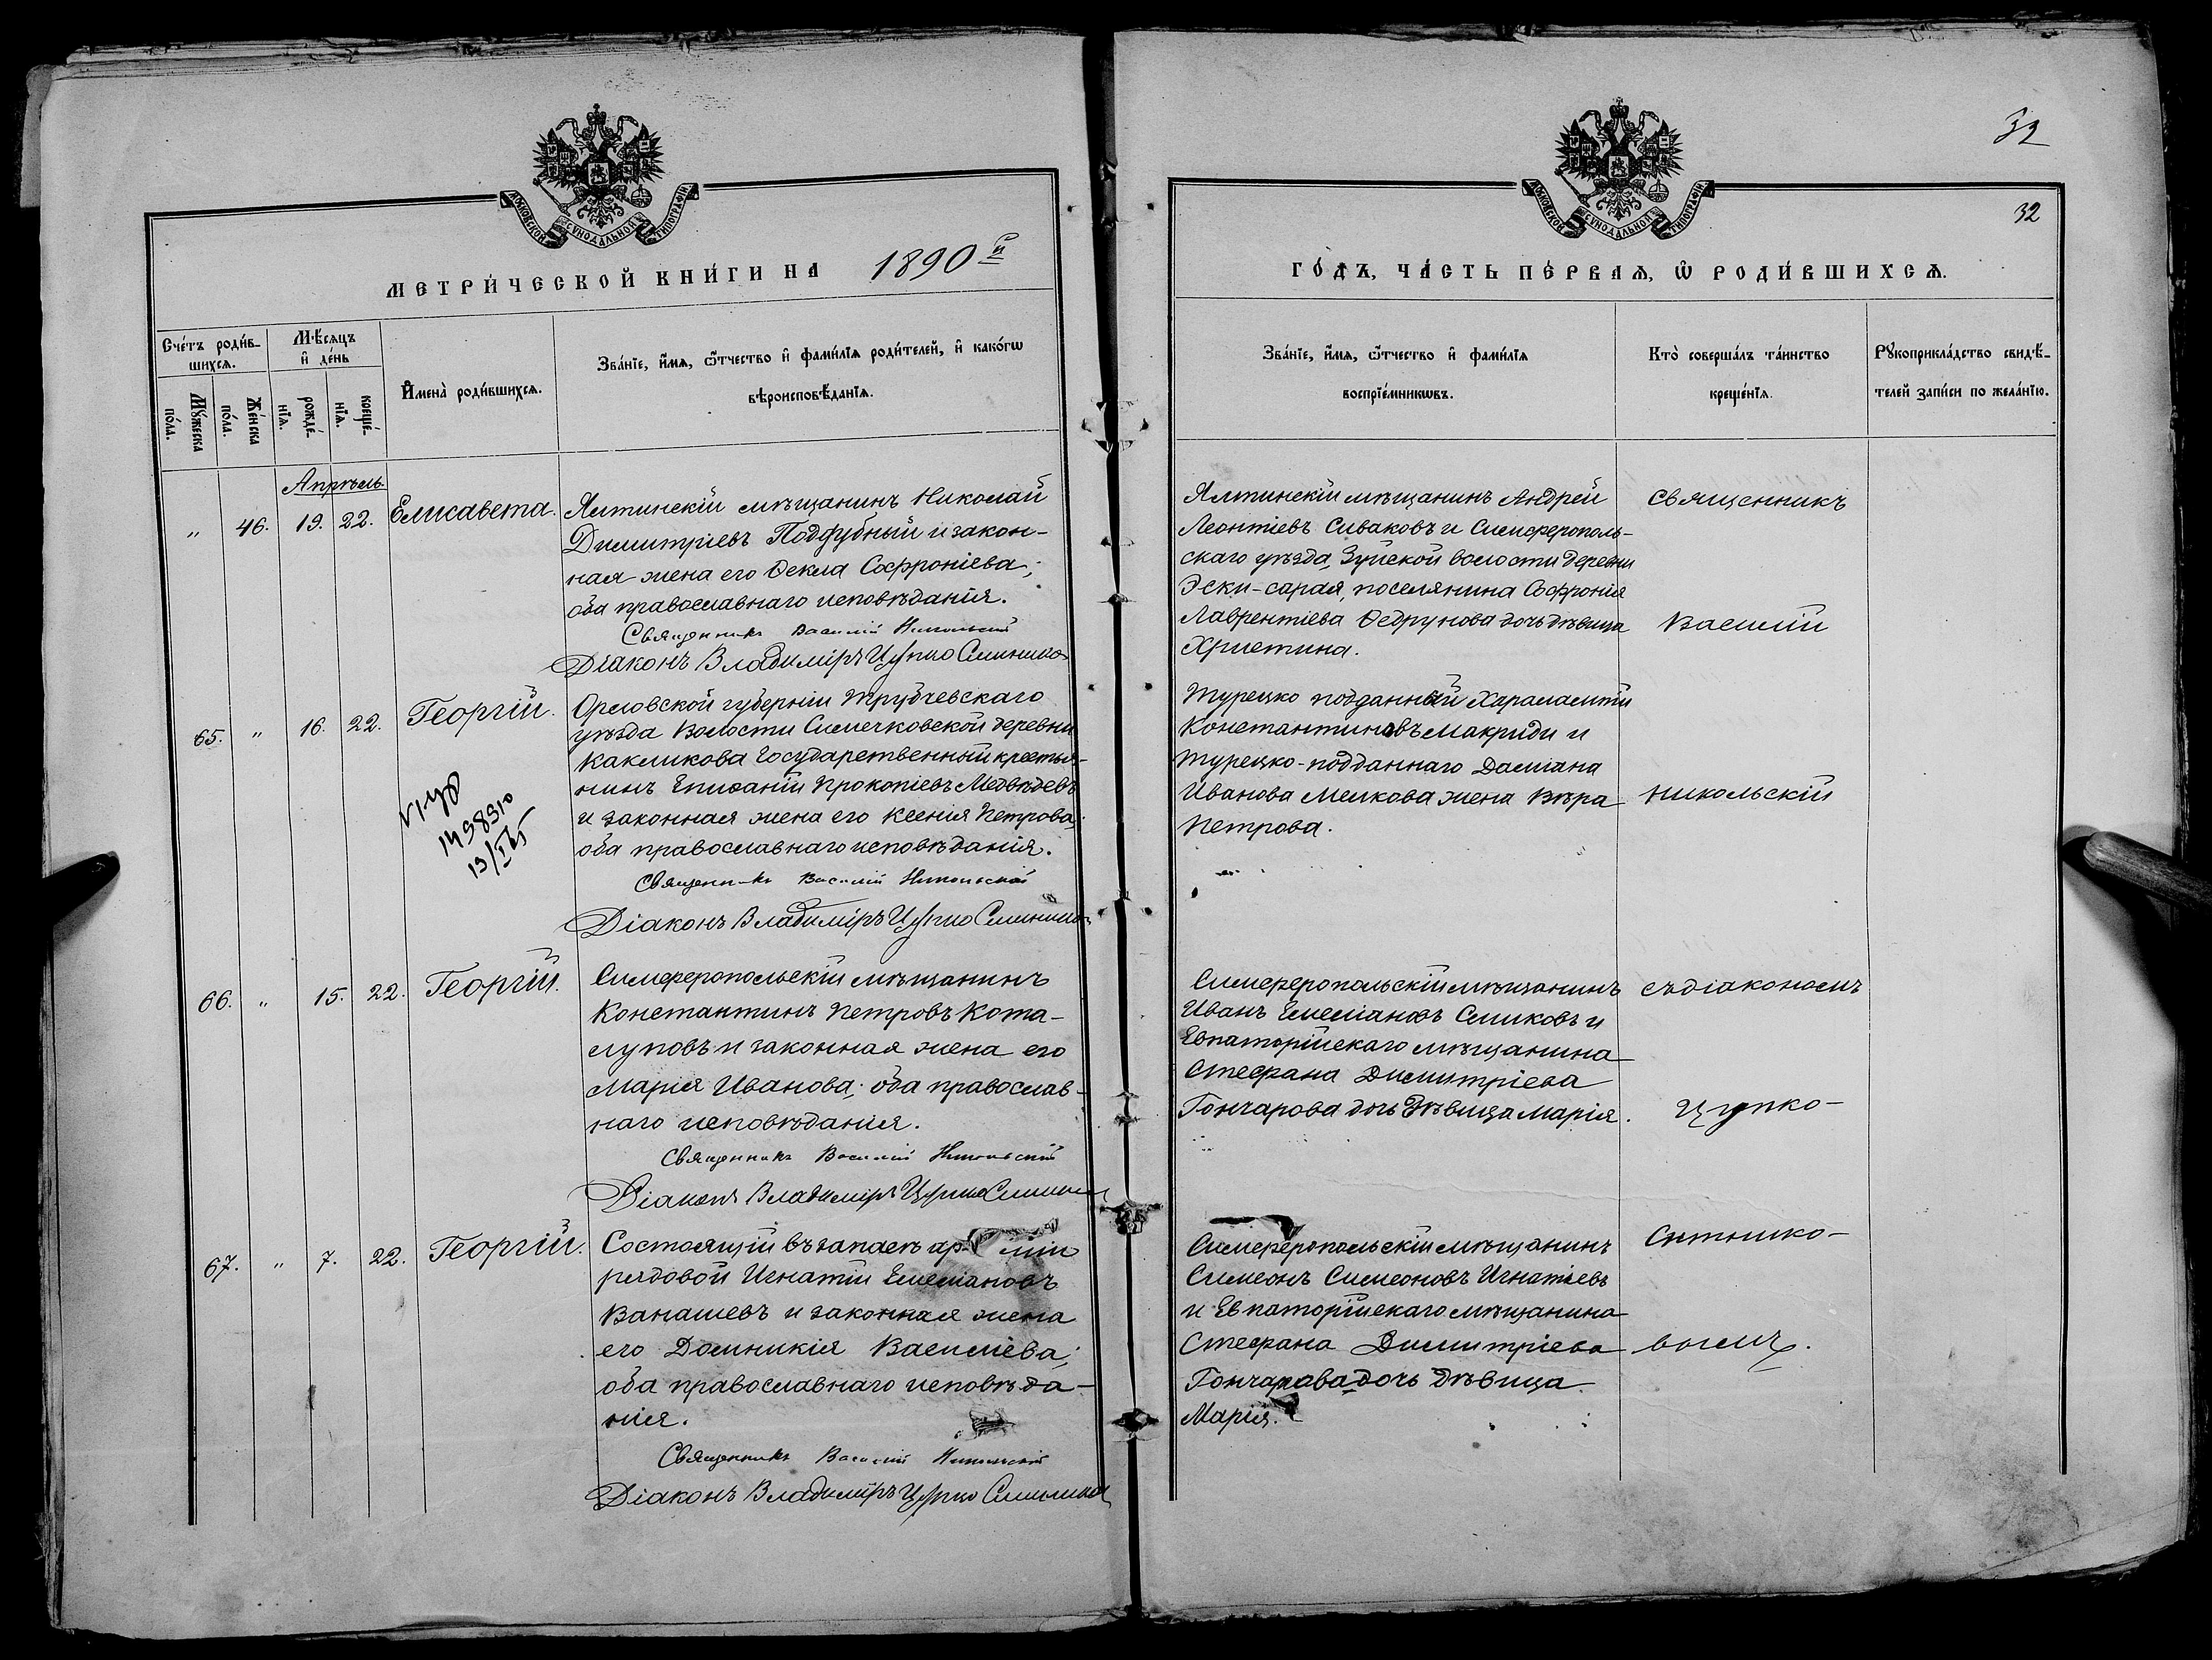 32
32
МОСКОВСКОЙ СѴНОДАЛЬНОЙ ТИПОГРАФІИ
МОСКОВСКОЙ СѴНОДАЛЬНОЙ ТИПОГРАФІИ
МЕТРИ́ЧЕСКОЙ КНИ́ГИ НА 1890й
ГО́ДЪ, ЧА́СТЬ ПЕ́РВАѦ, Ѿ РОДИ́ВШИХСѦ.
Сче́тъ роди́в-
шихсѧ.
Мѣ́сѧцъ
и҆ де́нь
Мꙋ́жеска
по́ла.
Же́нска
по́ла.
рожде́-
нїѧ.
креще́-
нїѧ.
И҆мена̀ роди́вшихсѧ.
Зва́нїе, и҆́мѧ, ѻ҆́тчество и҆ фами́лїѧ роди́телей, и҆ како́гѡ
вѣроисповѣ́данїѧ.
Зва́нїе, и҆́мѧ, ѻ҆́тчество и҆ фами́лїѧ
воспрїе́мникѡвъ.
Кто̀ соверша́лъ та́инство
креще́нїѧ.
Рꙋкоприкла́дство свидѣ́-
телей за́писи по жела́нїю.
Апрѣль.
" 46. 19. 22. Елисавета.
Ялтинскій мѣщанинъ Николай
Димитріевъ Поддубный и закон-
ная жена его Ѳекла Софроніева;
оба православнаго исповѣданія.
Священникъ Василій Никольскій
Діаконъ Владиміръ Цупко
Ялтинскій мѣщанинъ Андрей
Леонтіевъ Сиваковъ и Симферополь-
скаго уѣзда, Зуйской волости деревни
Эски-сарая, поселянина Софронія
Лаврентіева Ѳедрунова дочь дѣвица
Христина.
Священникъ
Василій
65. " 16. 22. Георгій.
149890
Орловской губерніи Трубчевскаго
уѣзда Волости Силечковской деревни
Какликова Государственный крестья-
нинъ Епифаній Прокопіевъ Медвѣдевъ
и законная жена его Ксенія Петрова;
оба православнаго исповѣданія.
Священникъ Василій Никольскій
Діаконъ Владиміръ Цупко
Турецко подданный Харалампій
Константиновъ Макриди и
Турецко-подданнаго Даміана
Иванова Мелкова жена Вѣра
Петрова.
Никольскій
66. " 15. 22. Георгій.
Симферопольскій мѣщанинъ
Константинъ Петровъ Ката-
луповъ и законная жена его
Марія Иванова; оба православ-
наго исповѣданія.
Священникъ Василій Никольскій
Діаконъ Владиміръ Цупко
Симферопольскій мѣщанинъ
Иванъ Емеліановъ Слиховъ и
Евпаторійскаго мѣщанина
Стефана Димитріева
Гончарова дочь дѣвица Марія.
съ діакономъ
Цупко-
67. " 7. 22. Георгій.
Состоящій въ запасѣ арміи
рядовой Игнатій Емеліановъ
Ванашевъ и законная жена
его Домникія Василіева;
оба православнаго исповѣда-
нія.
Священникъ Василій Никольскій
Діаконъ Владиміръ Цупко
Симферопольскій мѣщанинъ
Симеонъ Симеоновъ Игнатіевъ
и Евпаторійскаго мѣщанина
Стефана Димитріева
Гончарова дочь дѣвица
Марія.
Ситнико-
вымъ.